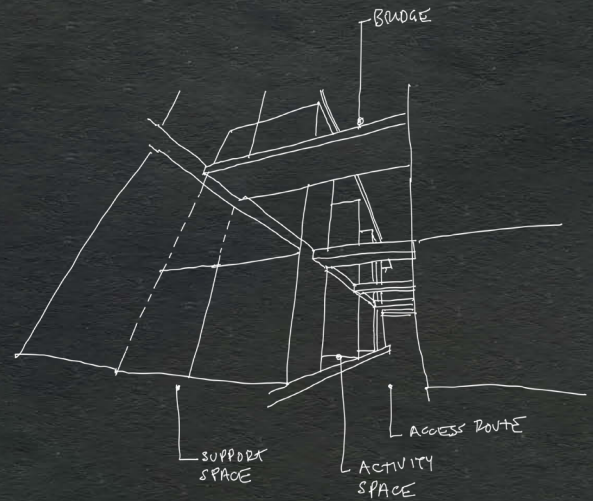 BRIDGE
ACCESS ROUTE
SUPPORT
SPACE
ACTIVITY
SPACE